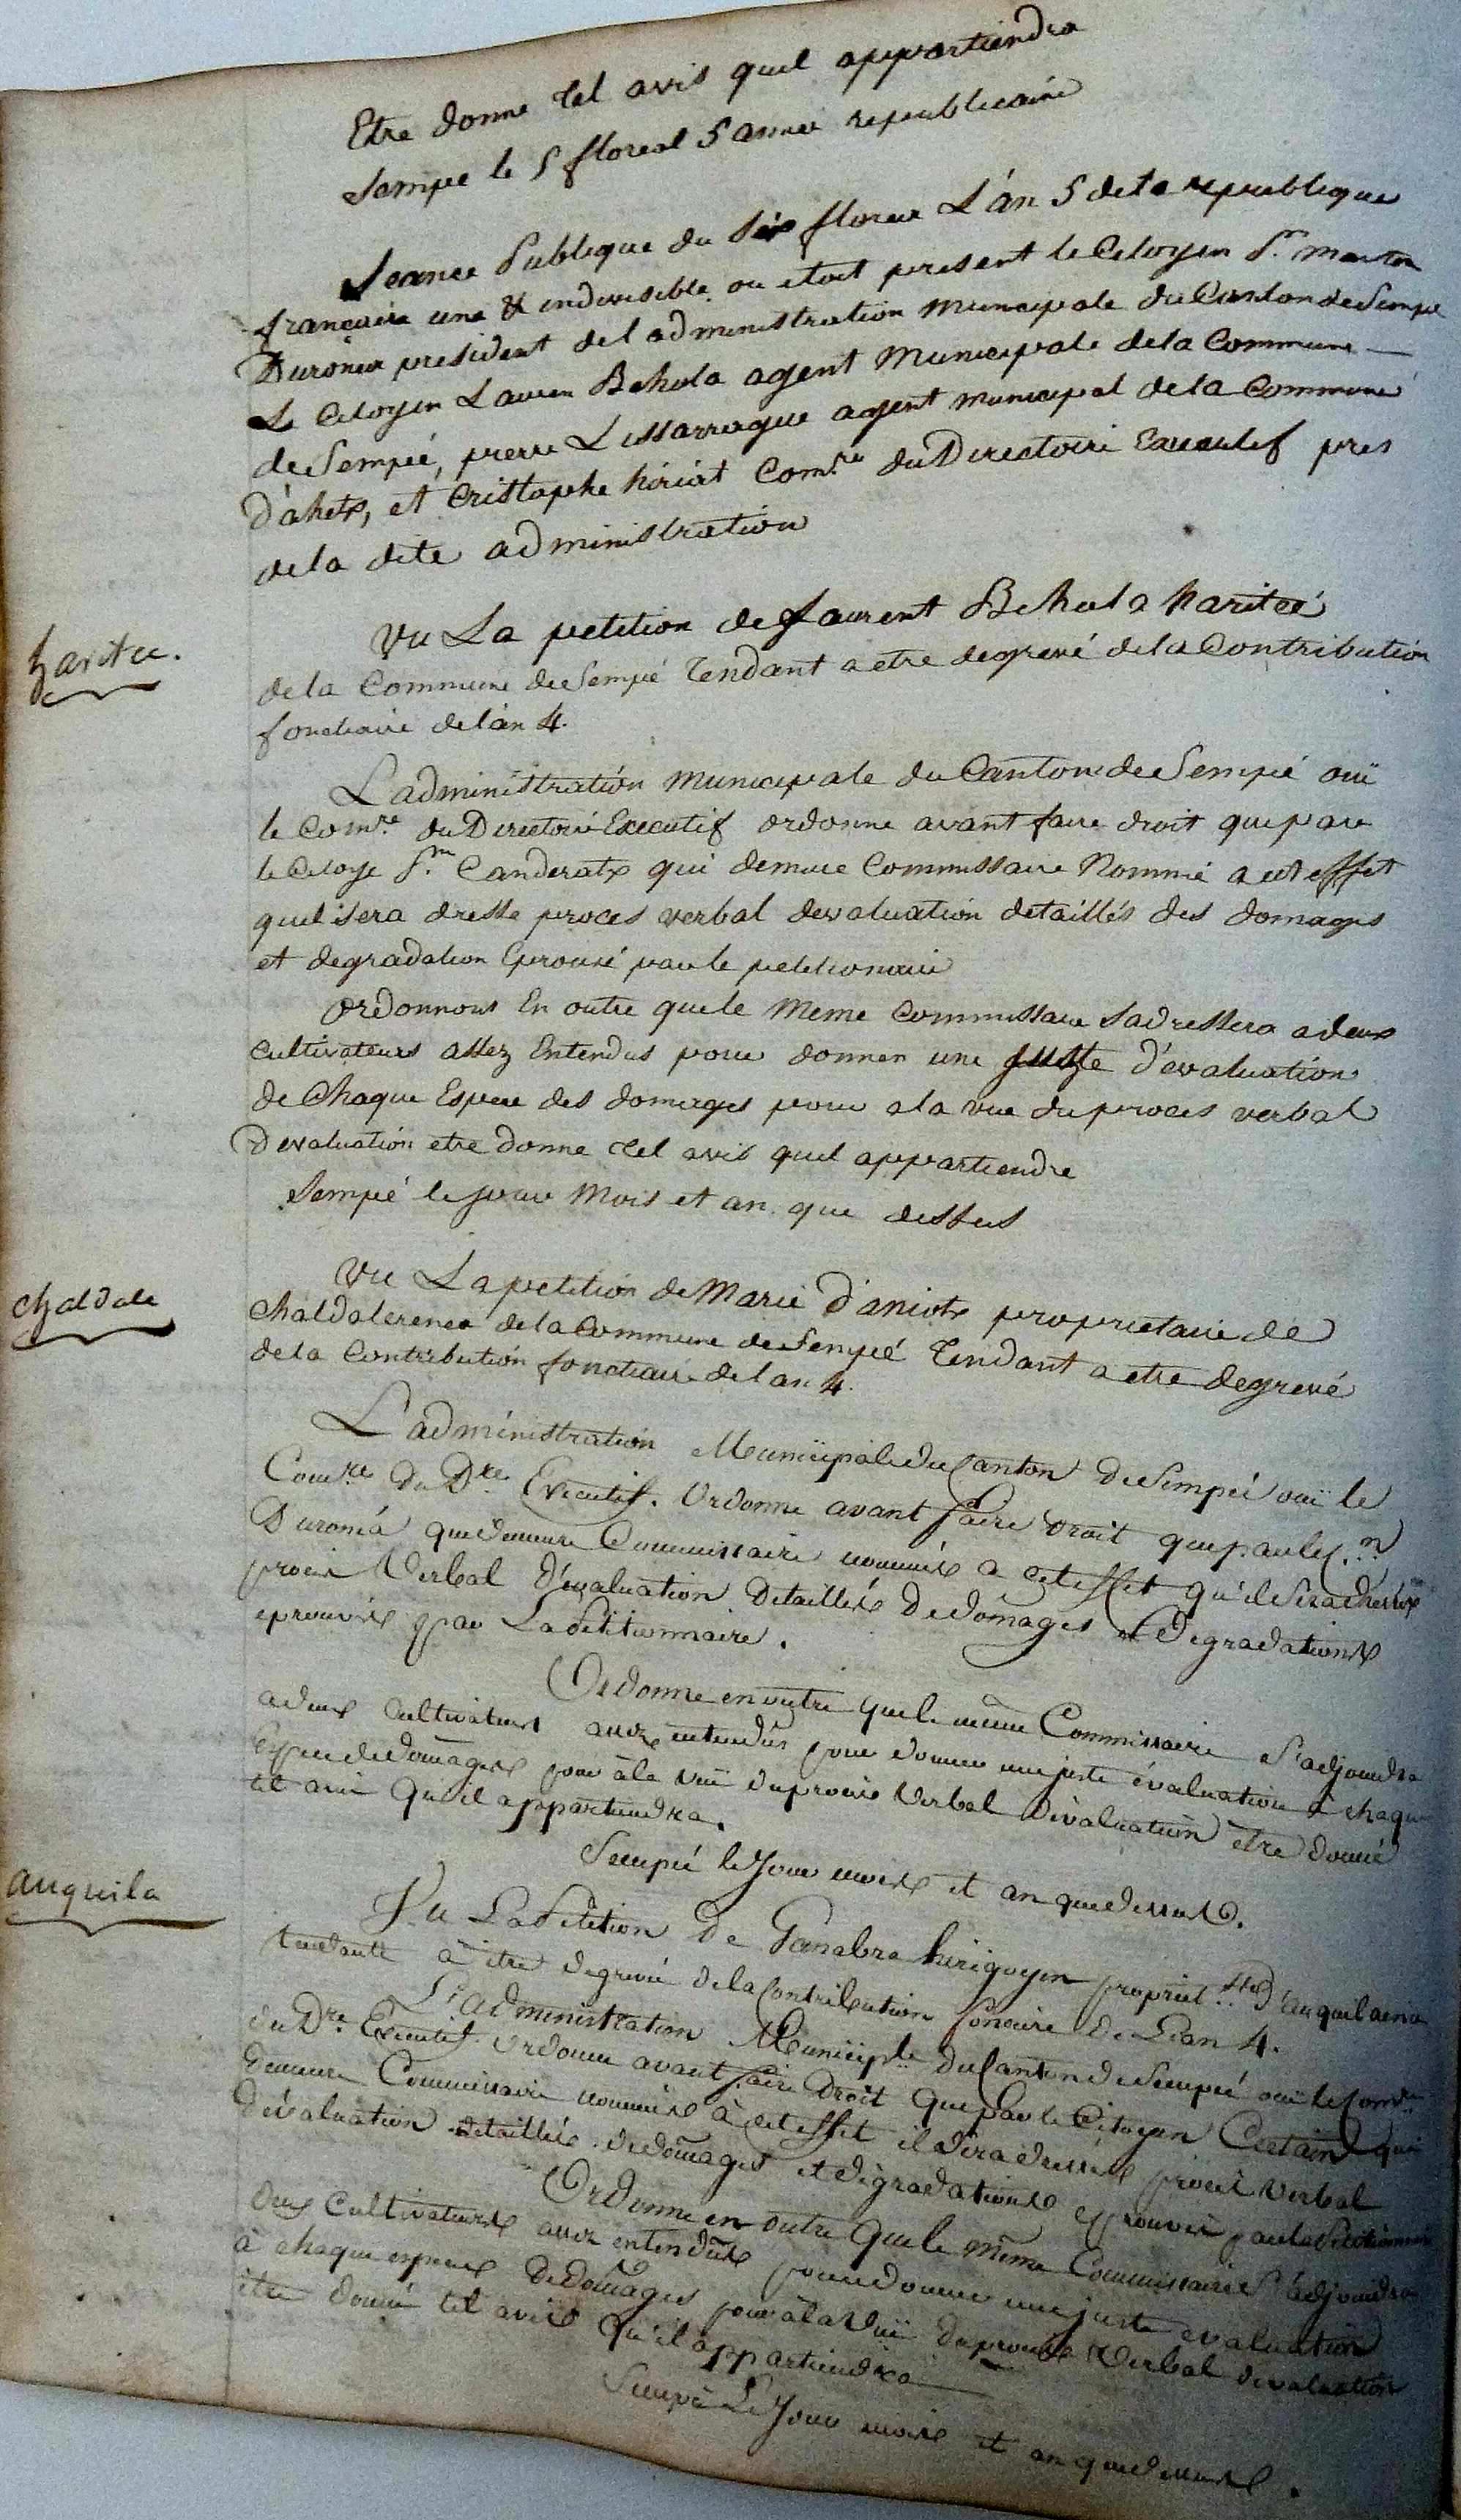 Etre donne tel avis quil appartiendra
Sempé le 5 floreal 5 année republicaine
Seance Publique du Six floreal L'an 5 de la republique
francaise une & indivisible ou etoit present le Citoyen
president de l administration Municipale du Canton de Sempé
Le Citoyen Lauren Behola agent Municipale de la Commune
de Sempié, pierre Lissarrague agent municipal de la Commune
D'ahetx, et Cristophe hiriart Com.re du Directoire Executif pres
de la dite administration
haritce.
Vu La petition de Laurent Behola haritcé
de la Commune de Sempié Tendant a etre degrevé de la Contribution
fonctiaire de l'an 4.
L'administration Municipale du Canton de Sempié ouï
le Com.re du Directoire Executif ordonne avant faire droit que par
le Citoye Canderatx qui demure Commissaire Nommé a cet effet
quil sera dresse proces verbal devaluation detaillés des domages
et degradation Eprouvé par le petitionaire
ordonnons En outre que le Meme Commissaire Sadressera a deux
Cultivateurs assez Entendus pour donner une juste d'evaluation
de Chaque Espece des domages pour a la vue du proces verbal
D evaluation etre donne tel avis quil appartiendre
Sempié le jour Mois et an que dessus
chaldale
Vu La petition de Marie D'aniotx proprietaire de
Chaldalerena de la Commune de Sempié Tendant a etre degrevé
de la Contribution fonctiaire de lan 4.
L'administration Municipale du Canton de Sempié ouï le
Com.re du D.re Executif. Ordonne avant faire droit que par le C.n
Duronéa que demeure Commissaire nommé a cet effet qu'il sera
procés Verbal d'évaluation detaillés de dômages et degradations
eprouvés par La Pétitionnaire.
Ordonne en outre que le même Commissaire s'adjoindra
a deux Cultivateurs assez entendus pour donner une juste évaluation à chaque
Espece de domages pour à la vuë du procés Verbal d'évaluation être donné
tel avis qu'il appartiendra.
Sempié le jour mois et an que dessus.
auquila
Vu La Pétition de Ganabra hirigoyen propriet.re d'auquilaena
tendante à être degrevé de la Contribution fonciere de L'an 4.
L'administration Municip.le du Canton de Sempié ouï le Com.re
du D.re Executif Ordonne avant faire droit que par le Citoyen Certain qui
demeure Commissaire nommé à cet effet il sera dressé procés Verbal
d'évaluation detaillés de domages et dégradations eprouvés par la Pétitionnaire
Ordonne en outre que le même Commissaire s'adjoindra
deux Cultivateurs assez entendus pour donner une juste evaluation
à chaque espece de domages pour à la Vuë du procés Verbal devaluation
être donné tel avis qu'il appartiendra
Sempié Le Jour mois et an que dessus.